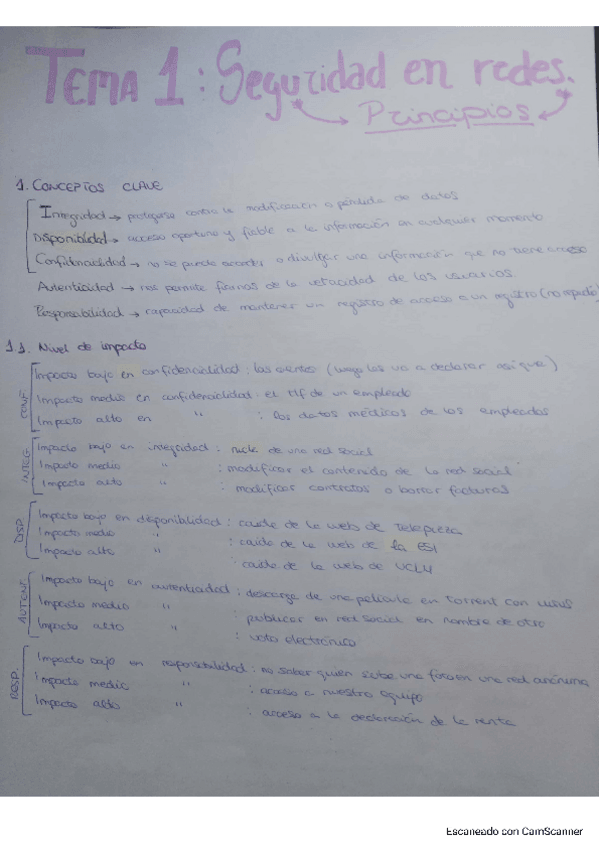 TEMA 1: Seguridad en redes.
Principios
1. CONCEPTOS CLAVE
Integridad → protegerse contra la modificación o pérdida de datos
Disponibilidad → acceso oportuno y fiable a la información en cualquier momento
Confidencialidad → no se puede acceder o divulgar una información que no tiene acceso
Autenticidad → nos permite de la veracidad de los usuarios
Responsabilidad → capacidad de mantener un registro de acceso a un registro (no repudio)
1.1. Nivel de impacto
CONF.
Impacto bajo en confidencialidad: las (luego las va a declarar así que)
Impacto medio en confidencialidad: el tlf de un empleado
Impacto alto en " : los datos médicos de los empleados
INTEG.
Impacto bajo en integridad: nick de una red social
Impacto medio " : modificar el contenido de la red social
Impacto alto " : modificar contratos o borrar facturas
DISP.
Impacto bajo en disponibilidad: caída de la web de Telepizza
Impacto medio " : caída de la web de la ESI
Impacto alto " : caída de la web de UCLM
AUTENT.
Impacto bajo en autenticidad: descarga de una película en Torrent con
Impacto medio " : publicar en red social en nombre de otro
Impacto alto " : voto electrónico
RESP.
Impacto bajo en responsabilidad: no saber quien sube una foto en una red anónima
Impacto medio " : acceso a nuestro equipo
Impacto alto " : acceso a la declaración de la renta
Escaneado con CamScanner